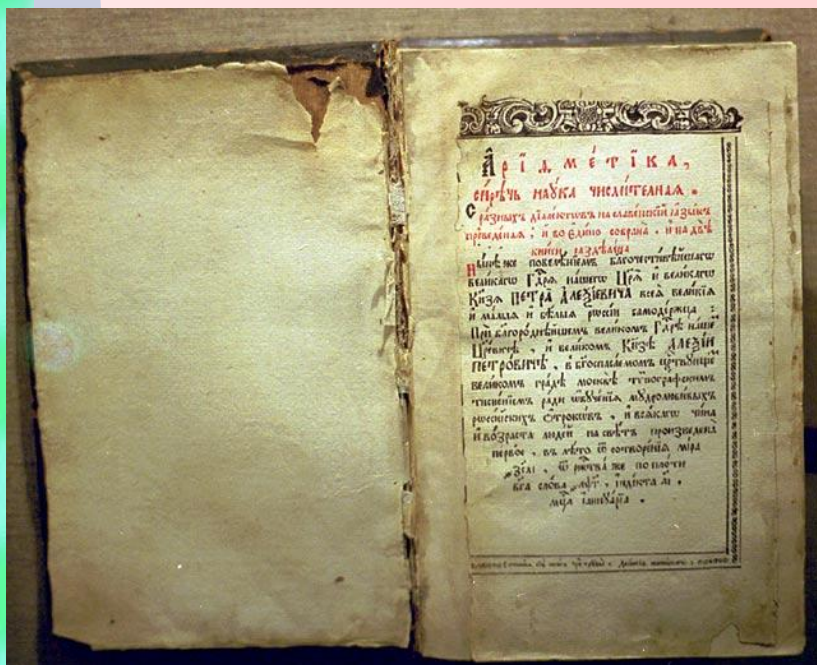 А҆рїѳме́тїка,
си́рѣчь наꙋ́ка числи́телная.
С ра́зныхъ дїале́ктѡвъ на славе́нскїй ꙗ҆зы́къ
преведе́ная, и҆ во є҆ди́но собрана̀, и҆ на двѣ̀
кни̑ги раздѣлена̀
Нн҃ѣ же повелѣ́нїемъ благочести́вѣйшагѡ
вели́кагѡ Гдⷭ҇рѧ на́шегѡ Цр҃ѧ̀ и҆ вели́кагѡ
Кнѧ́зѧ ПЕТРА̀ А҆ЛЕѮІ́ЕВИЧА всеѧ̀ вели́кїѧ
и҆ ма́лыѧ и҆ бѣ́лыѧ рѡссі́и самоде́ржца:
При благоро́днѣйшемъ вели́комъ Гдⷭ҇рѣ на́шемъ
Цр҃е́вичѣ, и҆ вели́комъ Кн҃зѣ А҆ЛЕѮІ́И
ПЕТРО́ВИЧѢ, в бг҃оспаса́емомъ црⷭ҇твꙋющемъ
вели́комъ гра́дѣ москвѣ̀ тѷпогра́фскимъ
тисне́нїемъ ра́ди ѡ҆бꙋче́нїѧ мꙋдролюби́выхъ
рѡссі́йскихъ ѻ҆́трокѡвъ, и҆ всѧ́кагѡ чи́на
и҆ во́зраста люде́й на свѣ́тъ произведена̀
пе́рвое, въ лѣ́то ѿ сотворе́нїѧ мі́ра
ѿ ржⷭ҇тва̀ же по пло́ти
бг҃а сло́ва ҂а҃ѱг, їндїкта а҃і,
мцⷭ҇а їаннꙋа́рїа.